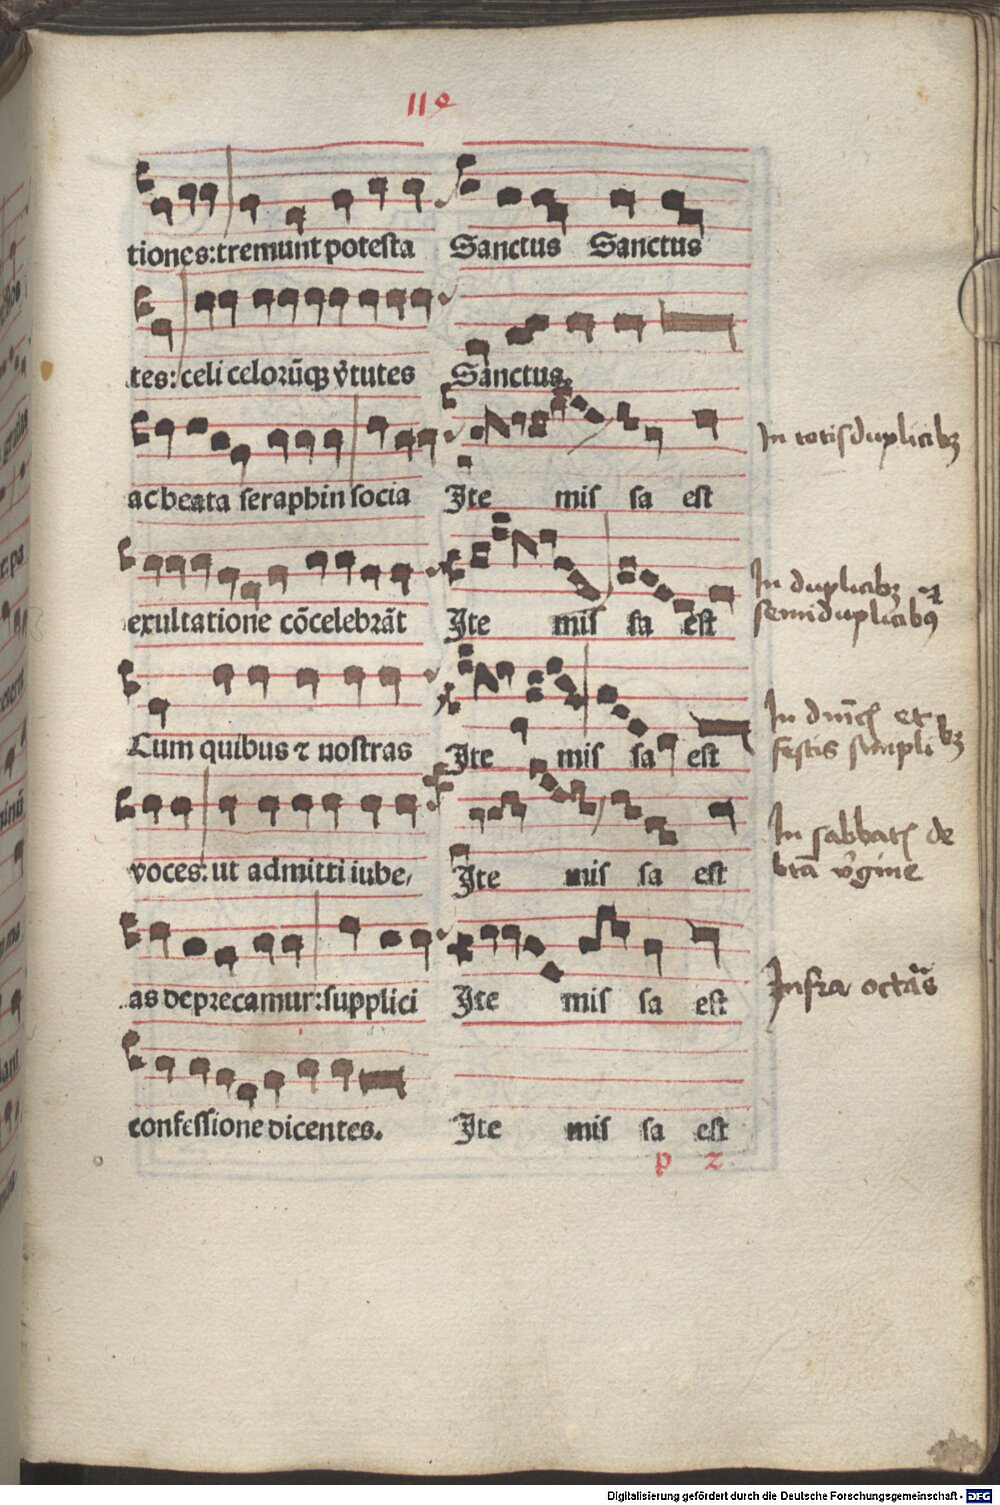 119
tiones:tremunt potesta
tes:celi celorūqꝫ v̾tutes
ac beata seraphin socia
exultatione cōcelebrāt
Cum quibus ⁊ nostras
voces:ut admitti iube,
as deprecamur:supplici
confessione dicentes.
Sanctus Sanctus
Sanctus.
Ite mis sa est
In totis duplicibꝫ
Ite mis sa est
In duplicibꝫ et
semiduplicibꝰ
Ite mis sa est
In et
festis simpli bꝫ
Ite mis sa est
In sabbatꝭ de
btā v̾gine
Ite mis sa est
Infra octās
Ite mis sa est
p 2
Digitalisierung gefördert durch die Deutsche Forschungsgemeinschaft - DFG